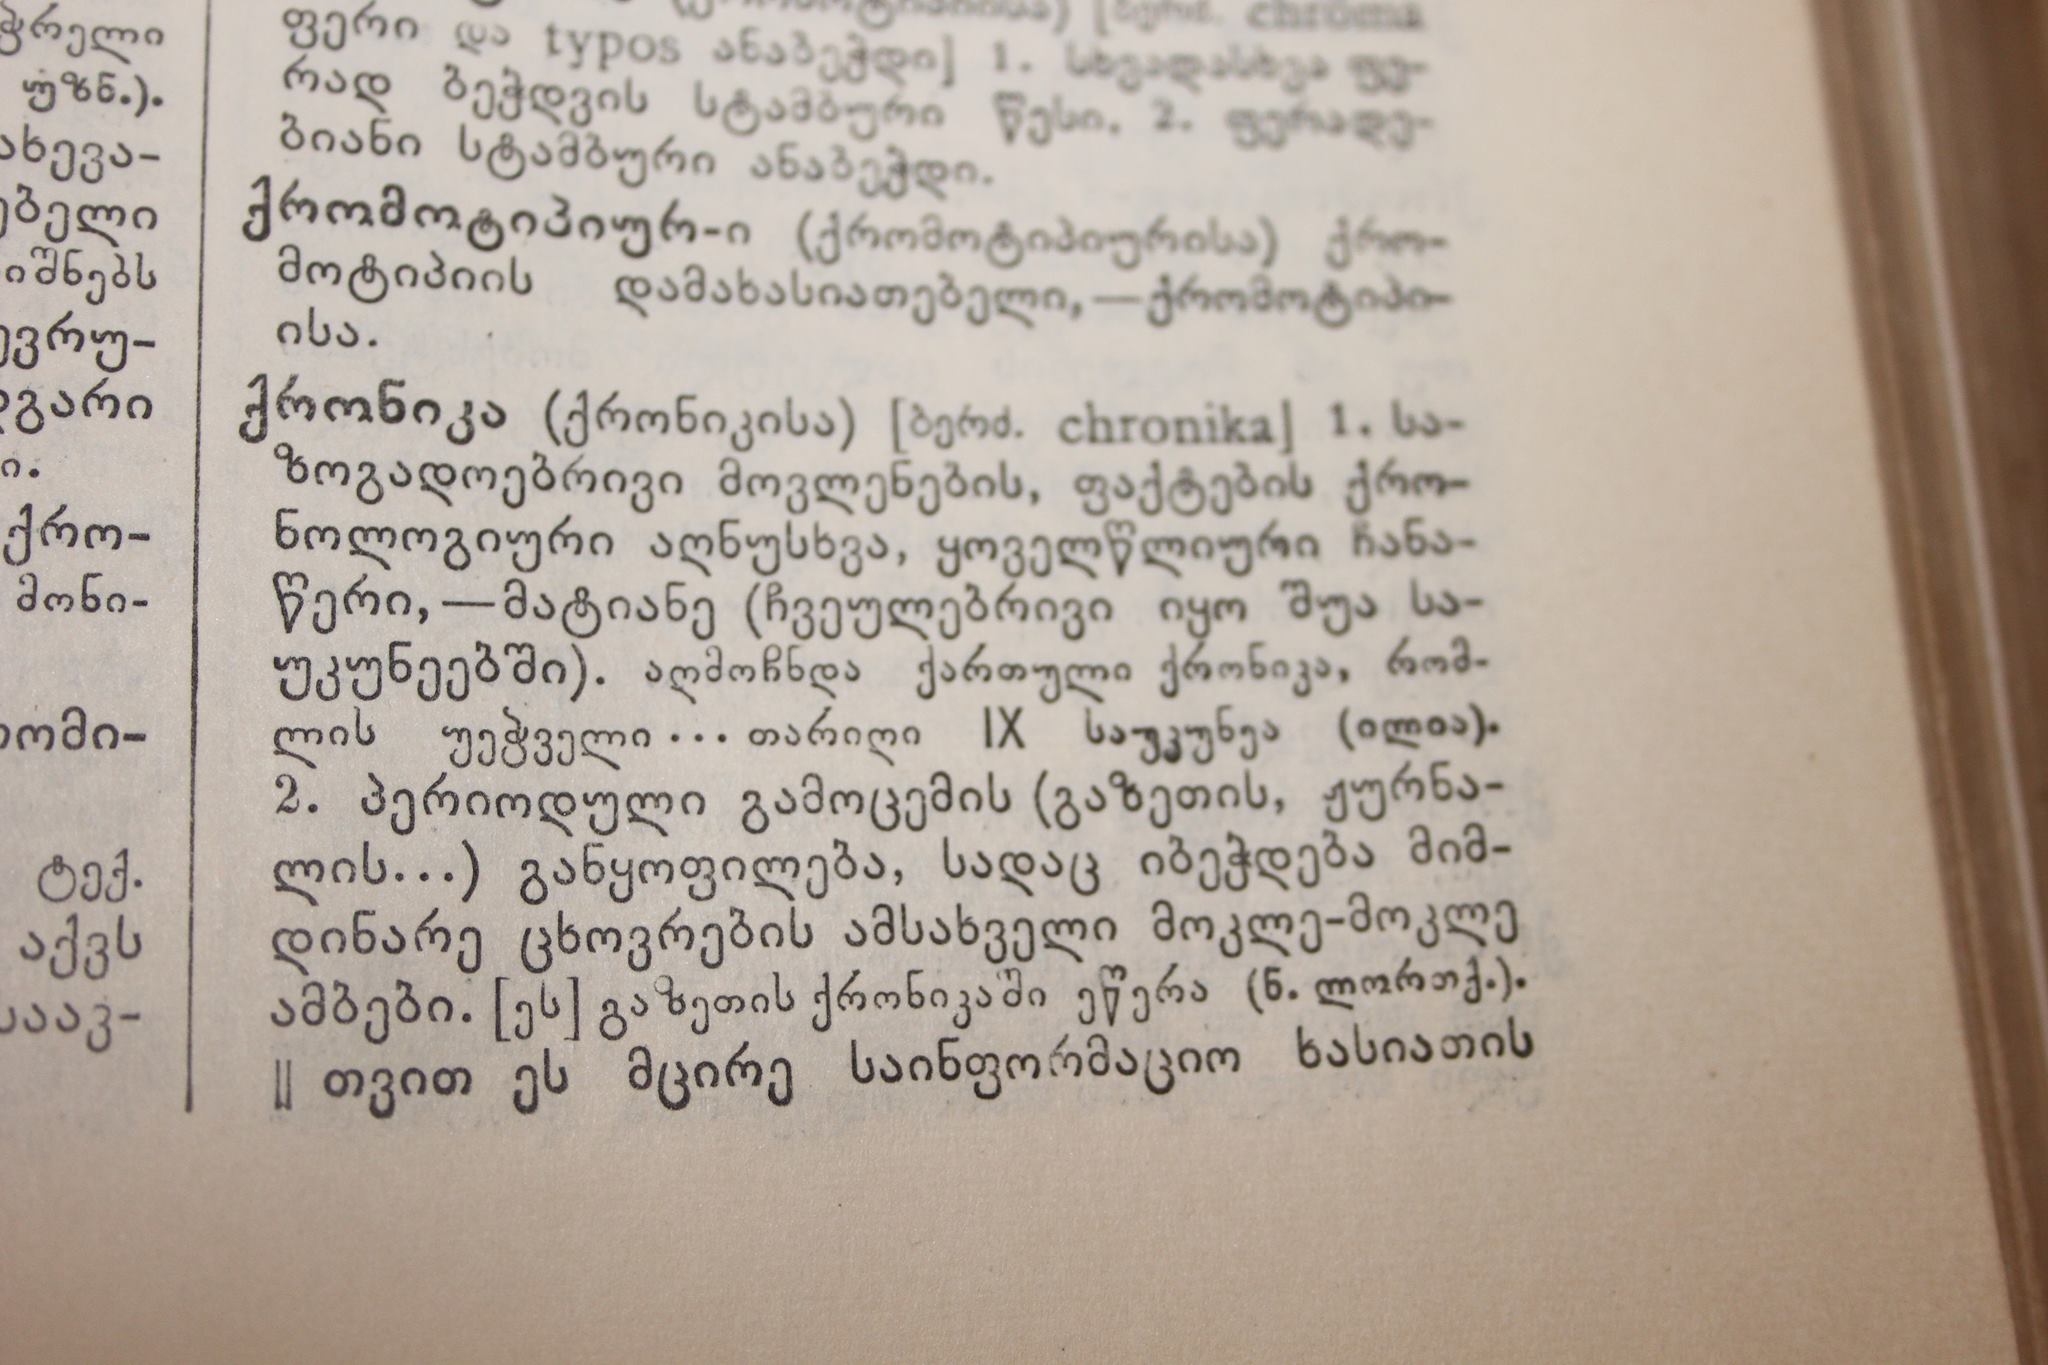 ჭრელი
უზნ.).
ახევა-
ებელი
იშნებს
ევრუ-
დგარი
ი.
ქრო-
მონი-
ომი-
ტექ.
აქვს
საავ-
[ბერძ. chrōma
ფერი და typos ანაბეჭდი] 1. სხვადასხვა ფე-
რად ბეჭდვის სტამბური წესი. 2. ფერადე-
ბიანი სტამბური ანაბეჭდი.
ქრომოტიპიურ-ი (ქრომოტიპიურისა) ქრო-
მოტიპიის დამახასიათებელი,—ქრომოტიპი-
ისა.
ქრონიკა (ქრონიკისა) [ბერძ. chronika] 1. სა-
ზოგადოებრივი მოვლენების, ფაქტების ქრო-
ნოლოგიური აღნუსხვა, ყოველწლიური ჩანა-
წერი,—მატიანე (ჩვეულებრივი იყო შუა სა-
უკუნეებში). აღმოჩნდა ქართული ქრონიკა, რომ-
ლის უეჭველი... თარიღი IX საუკუნეა (ილია).
2. პერიოდული გამოცემის (გაზეთის, ჟურნა-
ლის...) განყოფილება, სადაც იბეჭდება მიმ-
დინარე ცხოვრების ამსახველი მოკლე-მოკლე
ამბები. [ეს] გაზეთის ქრონიკაში ეწერა (ნ. ლორთქ.).
|| თვით ეს მცირე საინფორმაციო ხასიათის